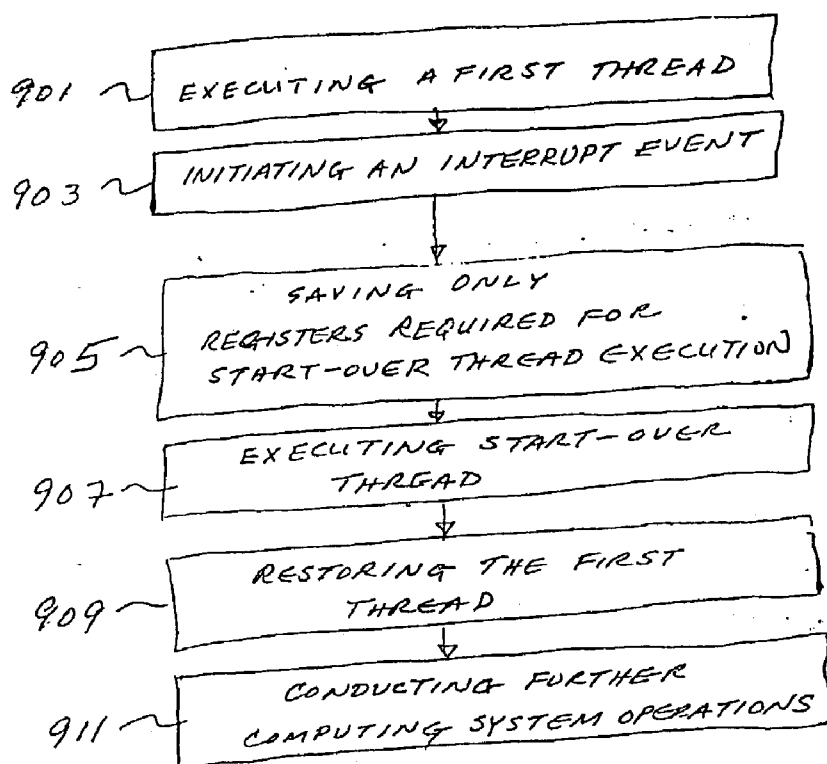 901 EXECUTING A FIRST THREAD
903 INITIATING AN INTERRUPT EVENT
SAVING ONLY
REGISTERS REQUIRED FOR
905 START-OVER THREAD EXECUTION
EXECUTING START-OVER
907 THREAD
RESTORING THE FIRST
909 THREAD
CONDUCTING FURTHER
911 COMPUTING SYSTEM OPERATIONS